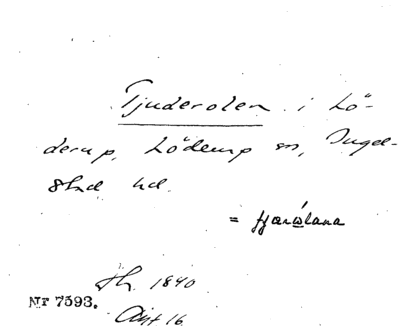 Tjuderolen i Lö-
derup, Löderup sn, Ingel-
stad hd.
= fjæraᷝlana
Sk. 1840
Nr 7593.
Akt 16